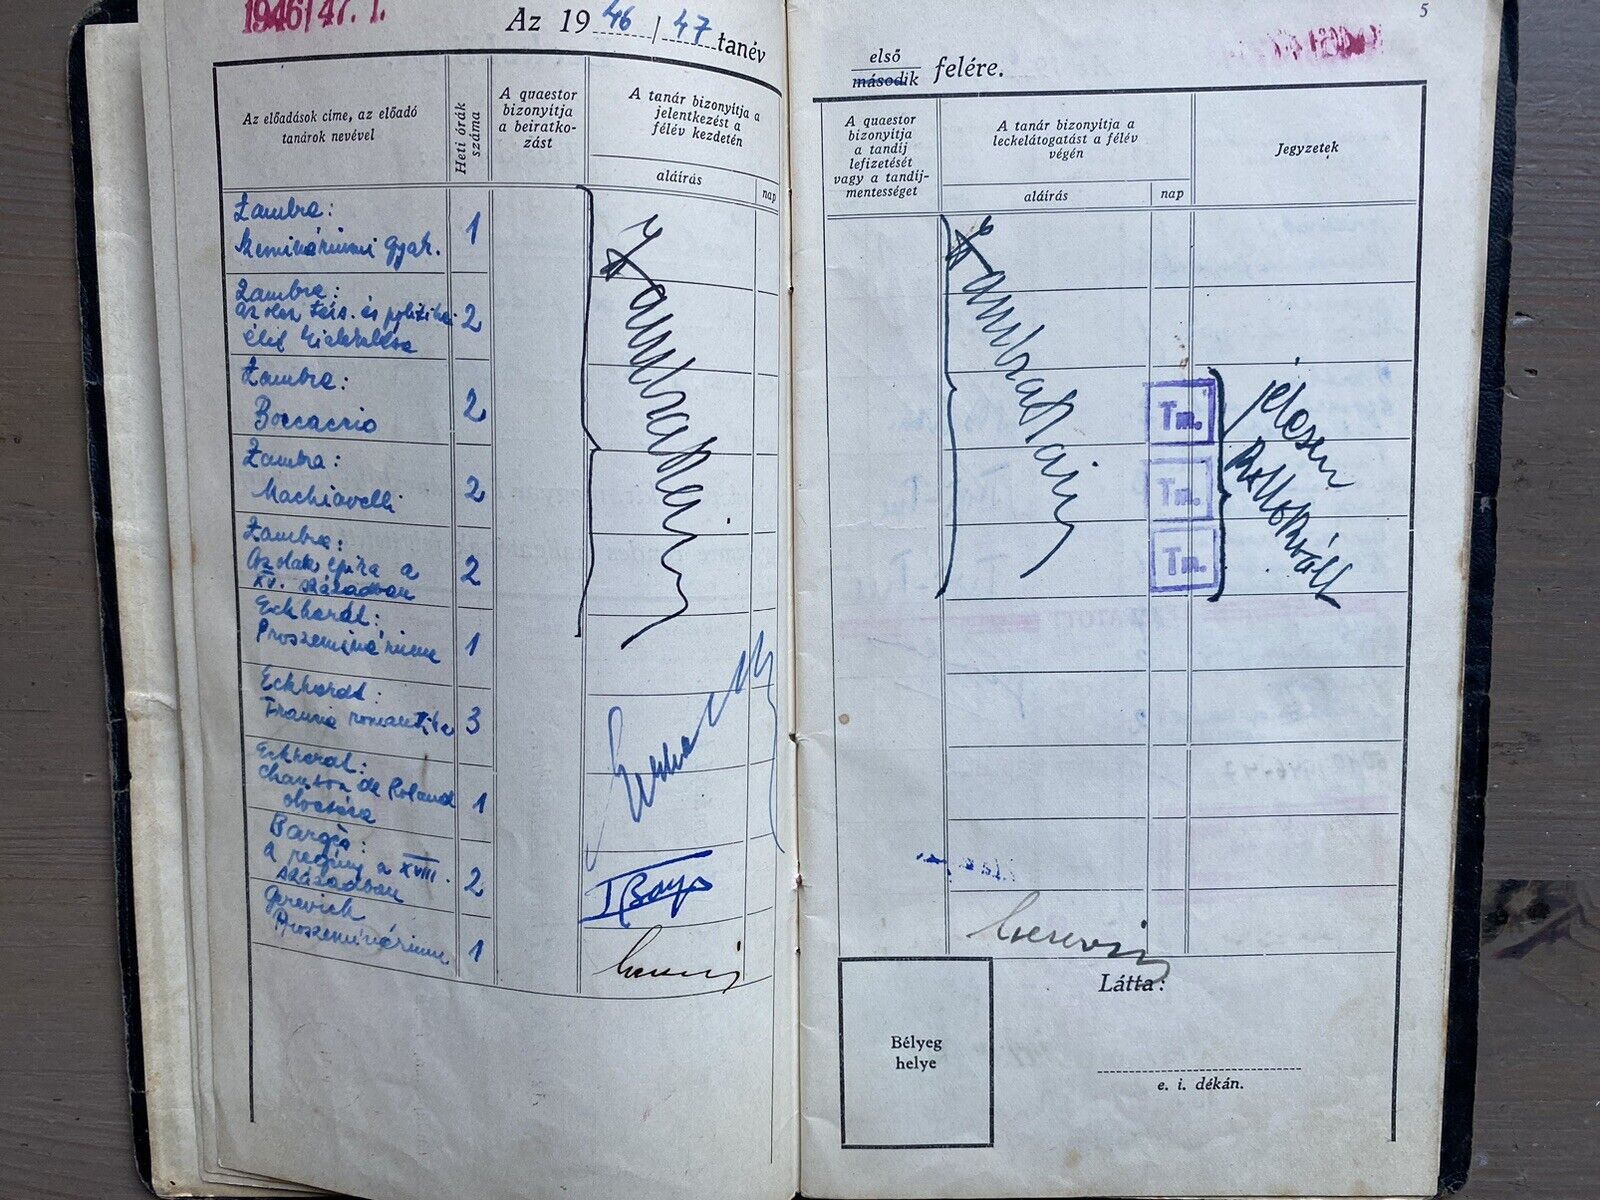 1946/47. I.
Az 1946/47 tanév
Az előadások címe, az előadó
tanárok nevével
Heti órák
száma
A quaestor
bizonyítja
a beiratko-
zást
A tanár bizonyítja a
jelentkezést a
félév kezdetén
aláírás
nap
Zambra:
Szemináriumi gyak.
1
Zambra:
Az olasz társ. és politikai
élet
2
Zambra:
Boccaccio
2
Zambra:
Machiavelli
2
Zambra:
Az olasz epika a
XV. században
2
Eckhardt:
Proszeminárium
1
Eckhardt:
Francia romantika
3
Eckhardt:
Chanson de Roland
olvasása
1
Baryès:
A regény a XVIII.
században
2
Gerevich
Proszeminárium
1
5
első
második felére.
A quaestor
bizonyítja
a tandíj
lefizetését
vagy a tandíj-
mentességet
A tanár bizonyítja a
leckelátogatást a félév
végén
aláírás
nap
Jegyzetek
Tm.
Tm.
Tm.
jelesen
Gerevich
Látta:
Bélyeg
helye
e. i. dékán.